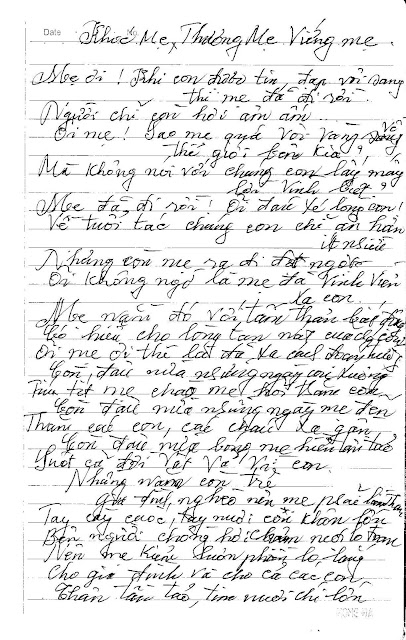 Date No
Khóc Mẹ, Thương Mẹ Viếng mẹ.
Mẹ ơi! Khi con được tin, đạp vội sang
thì mẹ đã đi rồi.
Người chỉ còn hơi âm ấm...
Ôi mẹ! Sao mẹ quá vội vàng về
thế giới bên kia?
Mà không nói với chúng con lấy mấy
lần vĩnh biệt?
Mẹ đã đi rồi! Ôi đau xé lòng con!
Về tuổi tác chúng con chỉ ân hận
ít nhiều
Nhưng còn mẹ ra đi đột ngột
Ôi không ngờ là mẹ đã vĩnh viễn
xa con!
Mẹ nằm đó với tấm thân bất động
Có hiểu cho lòng tan nát của con
Ôi mẹ ơi thế là đã xa cách
Còn đâu nữa những ngày xuống
mẹ chào mẹ hỏi thăm con
Còn đâu nữa những ngày mẹ đến
Thăm các con, các cháu xa gần
Còn đâu nữa bóng mẹ hiền tần tảo
Suốt cả đời vất vả vì con.
Những năm còn trẻ
gia đình nghèo nên mẹ phải
Tay cày cuốc, tay nuôi con khôn lớn
Bên người chồng
Nên mẹ luôn luôn phiền lo lắng
Cho gia đình và cho cả các con,
Thân tần tảo,